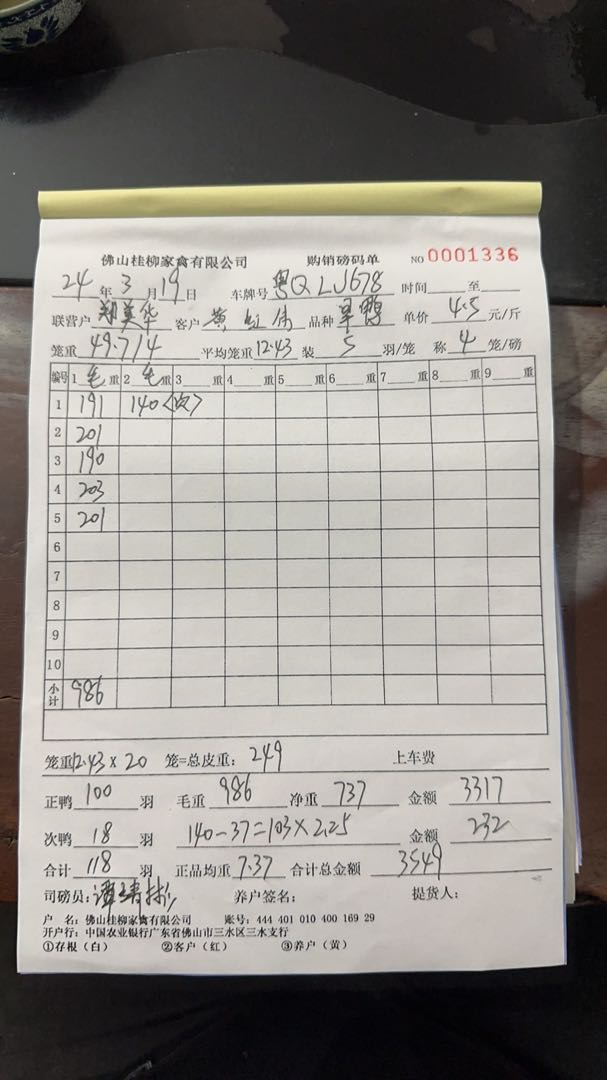 佛山桂柳家禽有限公司 购销磅码单 NO 0001336
24年3月19日 车牌号 粤QLJ678 时间 至
联营户 郑美华 客户 黄 品种 旱鸭 单价 4.5 元/斤
笼重 49.7/4 平均笼重 12.43 装 5 羽/笼 称 4 笼/磅
编号 1 毛 重 2 毛 重 3 重 4 重 5 重 6 重 7 重 8 重 9 重
1 191 140<次>
2 201
3 190
4 203
5 201
6
7
8
9
10
小计 986
笼重12.43×20 笼=总皮重: 249 上车费
正鸭 100 羽 毛重 986 净重 737 金额 3317
次鸭 18 羽 140-37=103×2.25 金额 232
合计 118 羽 正品均重 7.37 合计总金额 3549
司磅员: 谭 养户签名: 提货人:
户 名: 佛山桂柳家禽有限公司 账号: 444 401 010 400 169 29
开户行: 中国农业银行广东省佛山市三水区三水支行
①存根(白) ②客户(红) ③养户(黄)